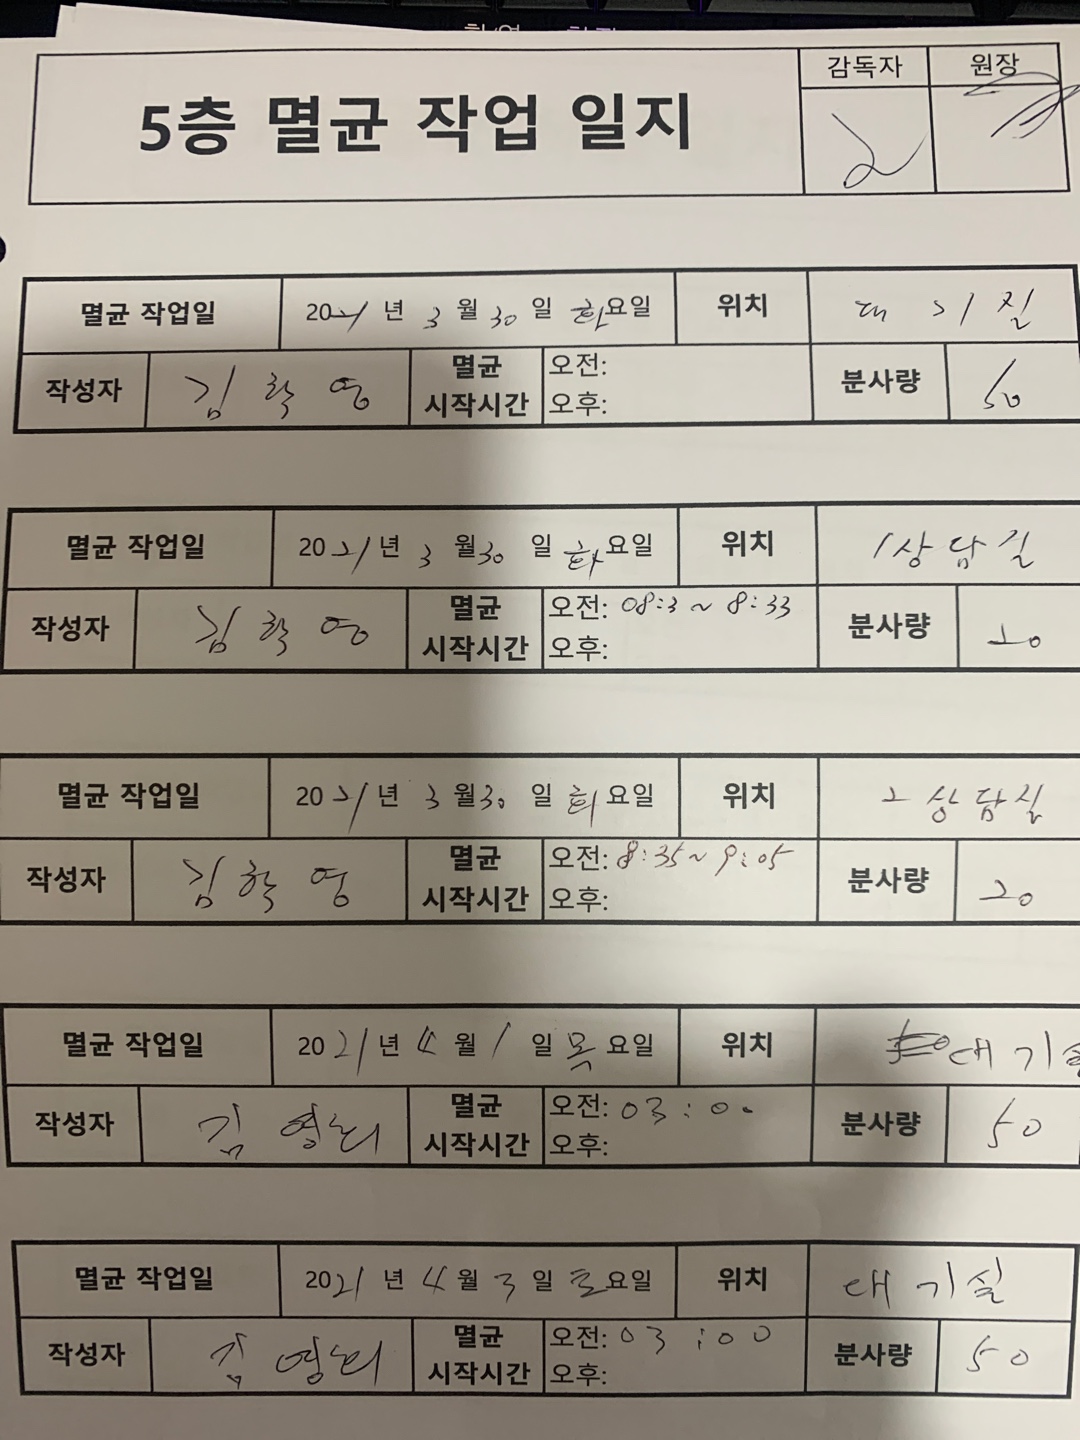 감독자 원장
5층 멸균 작업 일지
멸균 작업일 2021년 3월 30일 화요일 위치 대기실
작성자 김학영 멸균 시작시간 오전: 오후: 분사량 50
멸균 작업일 2021년 3월 30일 화요일 위치 1상담실
작성자 김학영 멸균 시작시간 오전: 08:3 ~ 8:33 오후: 분사량 20
멸균 작업일 2021년 3월 30일 화요일 위치 2상담실
작성자 김학영 멸균 시작시간 오전: 8:35 ~ 9:05 오후: 분사량 20
멸균 작업일 2021년 4월 1일 목요일 위치 대기실
작성자 김영희 멸균 시작시간 오전: 03:00 오후: 분사량 50
멸균 작업일 2021년 4월 3일 토요일 위치 대기실
작성자 김영희 멸균 시작시간 오전: 03:00 오후: 분사량 50